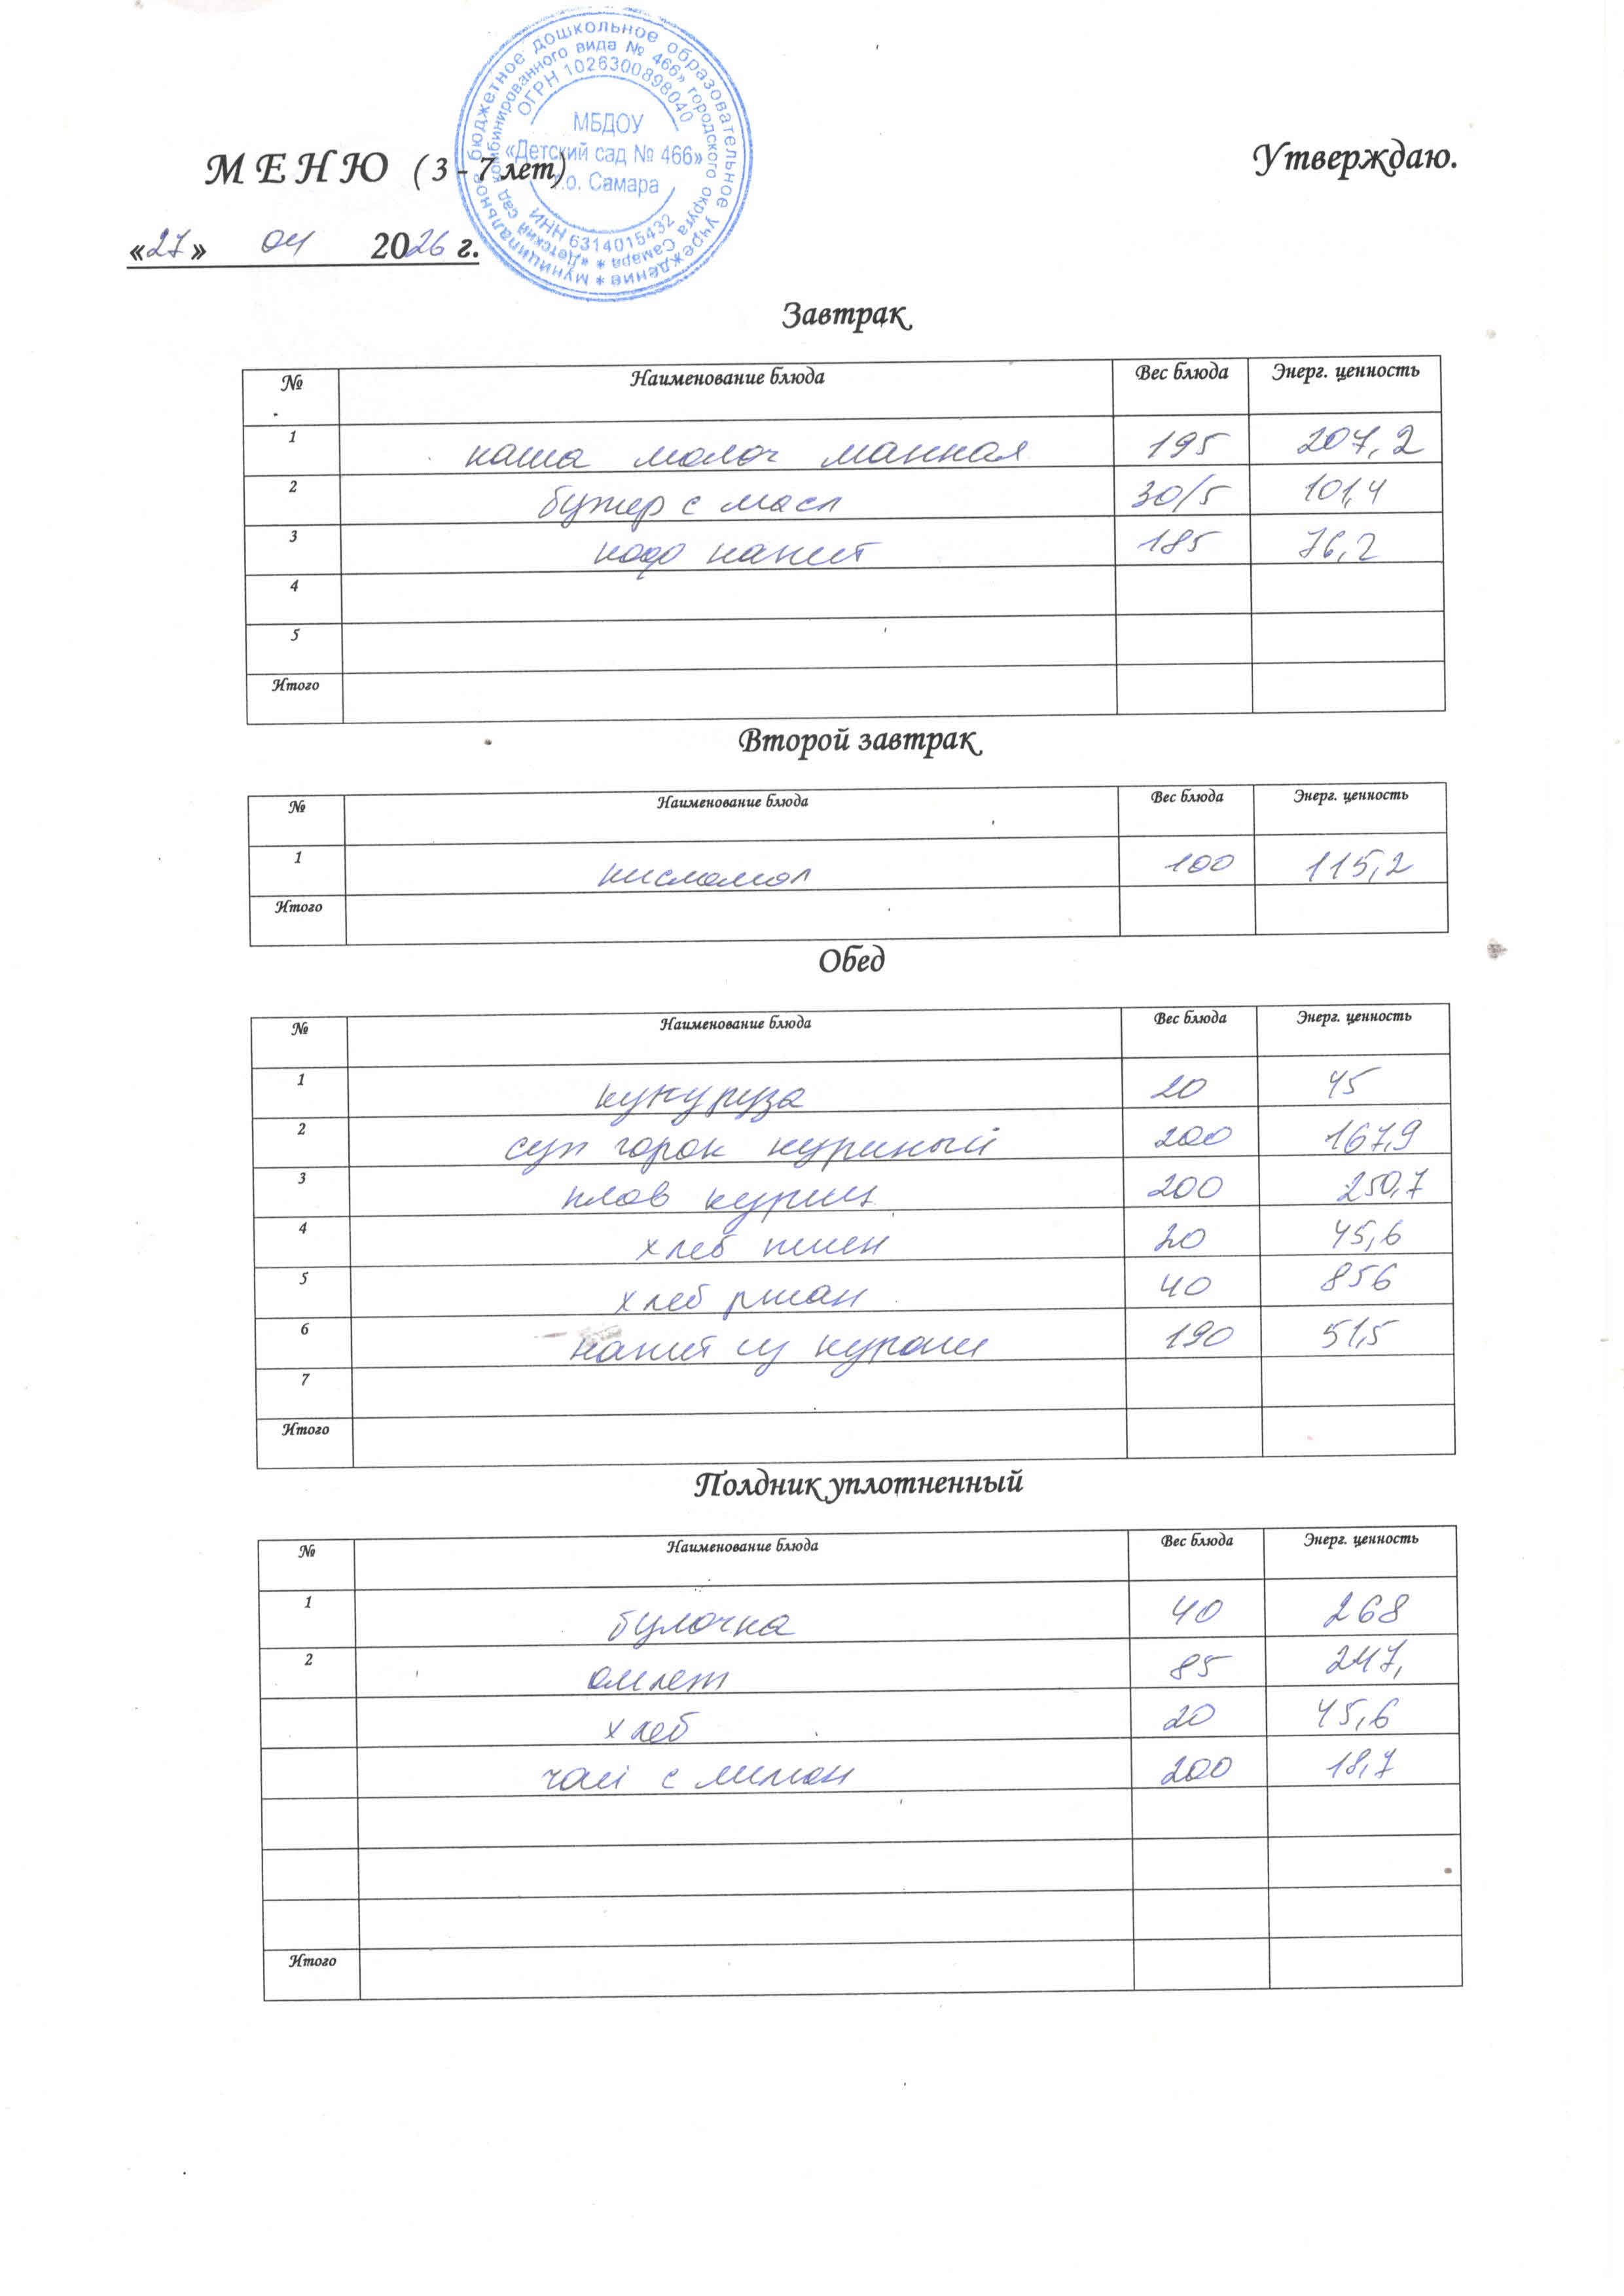 муниципальное бюджетное дошкольное образовательное учреждение *
«Детский сад комбинированного вида № 466» городского округа Самара *
ОГРН 1026300898040
МБДОУ
«Детский сад № 466»
г.о. Самара
ИНН 6314015432
М Е Н Ю ( 3 - 7 лет) Утверждаю.
«27» 04 2026 г.
Завтрак
№ Наименование блюда Вес блюда Энерг. ценность
1 каша молоч манная 195 207,2
2 бутер с масл 30/5 101,4
3 коф напит 185 76,2
4
5
Итого
Второй завтрак
№ Наименование блюда Вес блюда Энерг. ценность
1 кисломол 100 115,2
Итого
Обед
№ Наименование блюда Вес блюда Энерг. ценность
1 кукуруза 20 45
2 суп горох куриный 200 167,9
3 плов куриц 200 250,7
4 хлеб пшен 20 45,6
5 хлеб ржан 40 856
6 напит из кураги 190 51,5
7
Итого
Полдник уплотненный
№ Наименование блюда Вес блюда Энерг. ценность
1 булочка 40 268
2 омлет 85
хлеб 20 45,6
чай с лимон 200 18,7
Итого